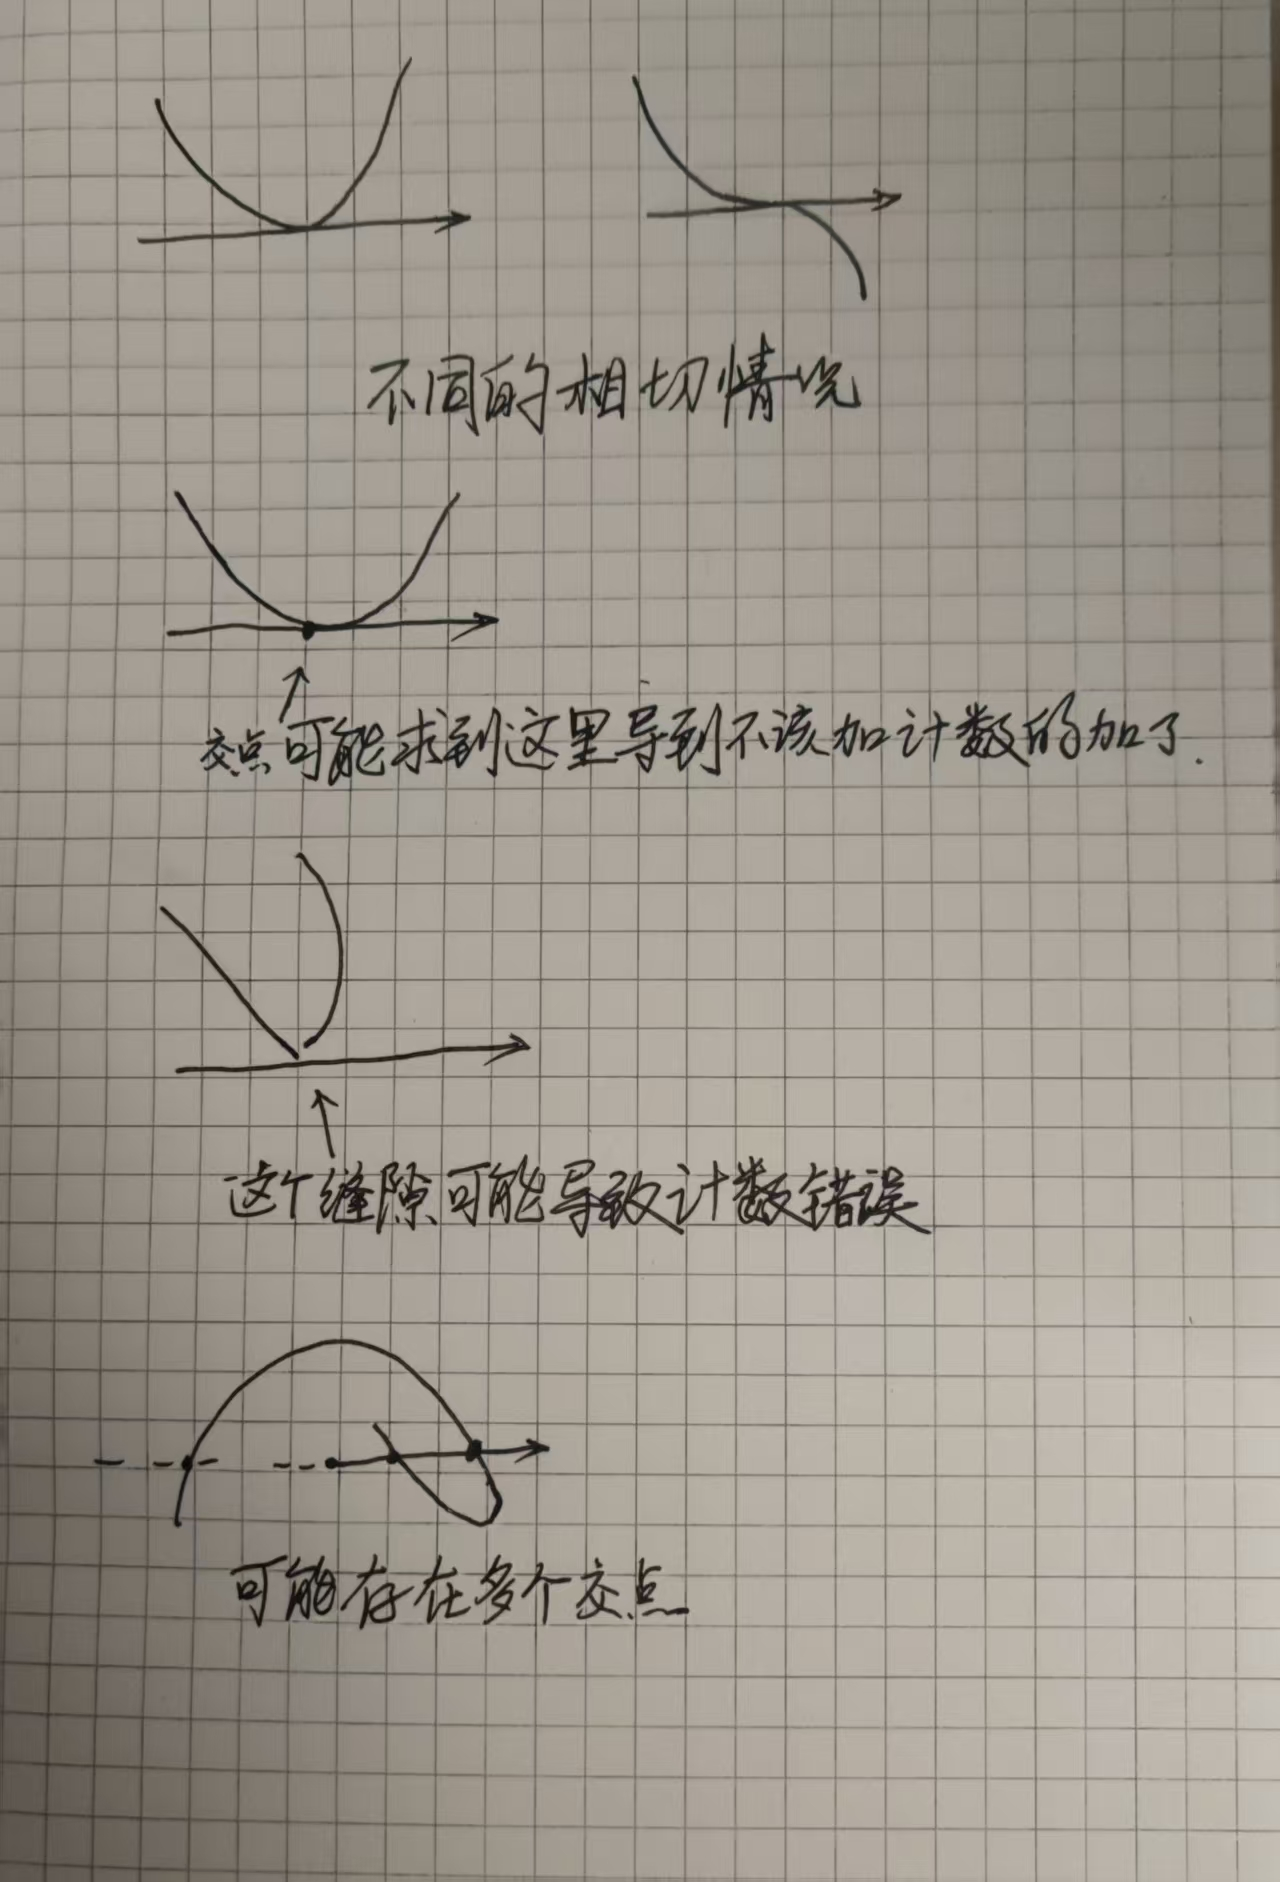 不同的相切情况
交点可能求到这里导到不该加计数的加了.
这个缝隙可能导致计数错误
可能存在多个交点